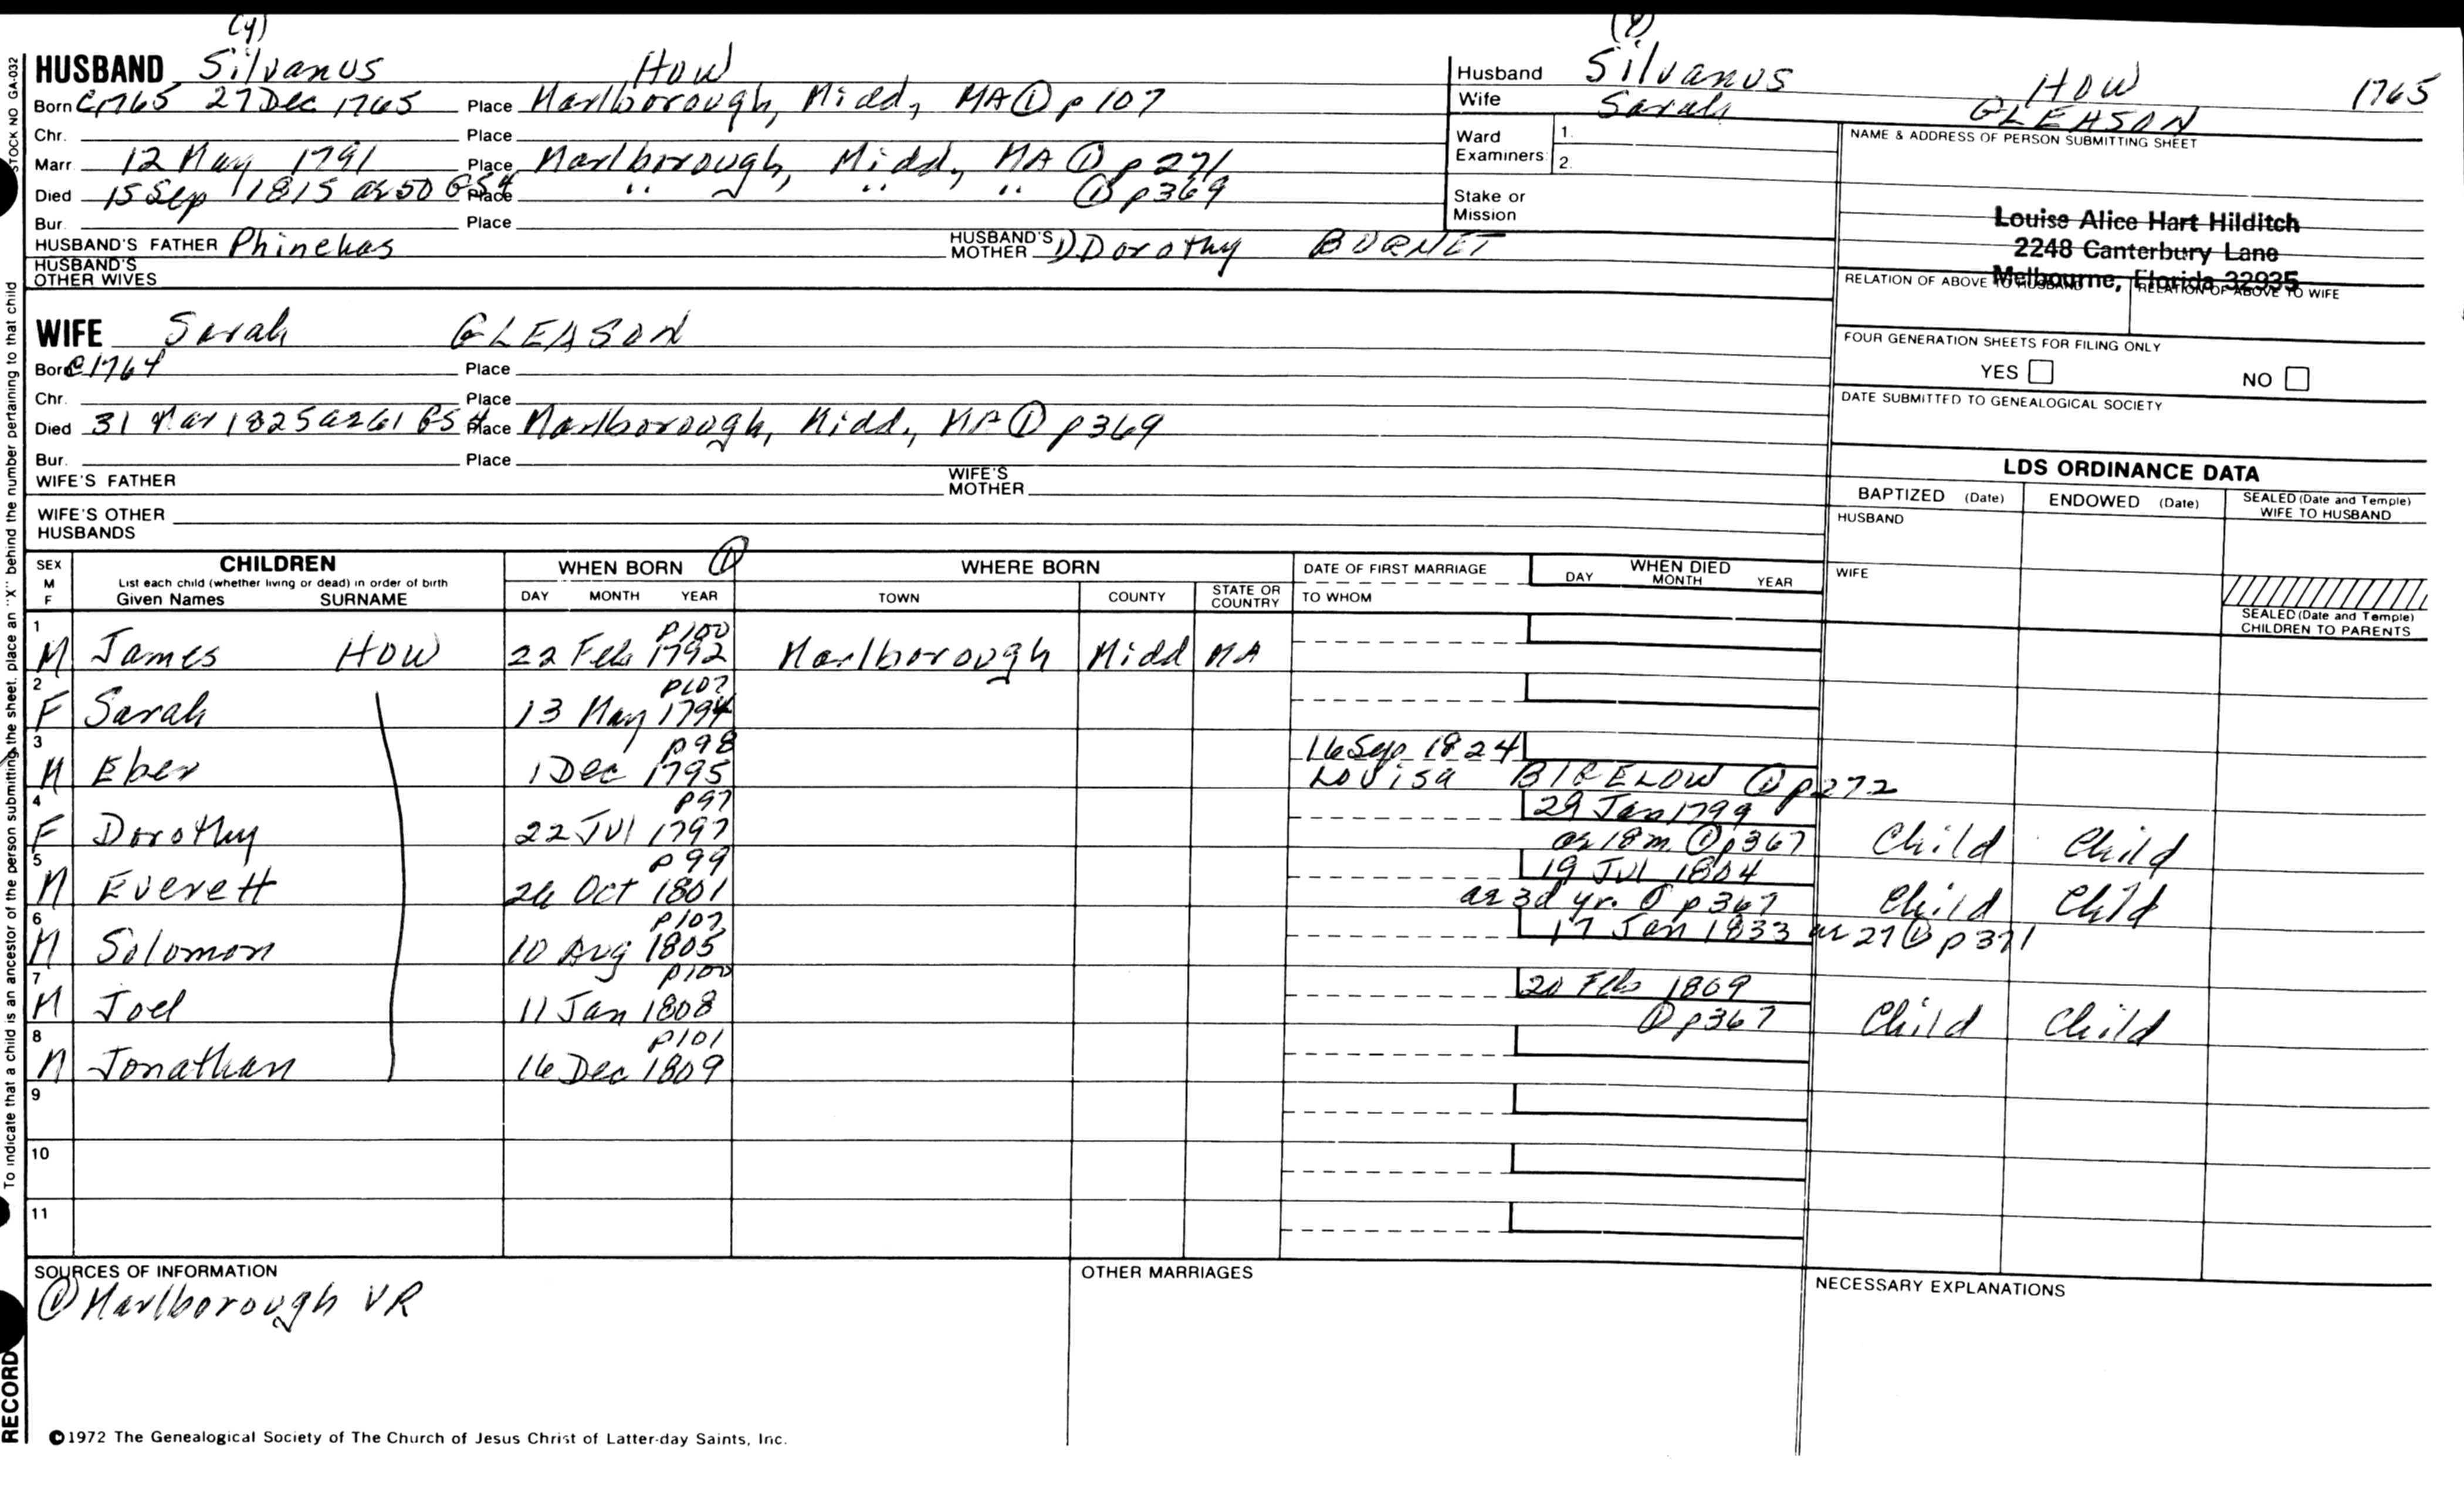 (4)
HUSBAND Silvanus HOW
Born C1765 27 Dec 1765 Place Marlborough, Midd, MA ① p 107
Chr. Place
Marr. 12 May 1791 Place Marlborough, Midd, MA ① p 271
Died 15 Sep 1815 ae 50 GS4 Place " " " ① p369
Bur. Place
HUSBAND'S FATHER Phinehas HUSBAND'S MOTHER Dorothy BURNET
HUSBAND'S OTHER WIVES
Husband Silvanus HOW 1765
Wife Sarah GLEASON
Ward Examiners 1.
2.
Stake or Mission
NAME & ADDRESS OF PERSON SUBMITTING SHEET
Louise Alice Hart Hilditch
2248 Canterbury Lane
Melbourne, Florida 32935
RELATION OF ABOVE TO HUSBAND RELATION OF ABOVE TO WIFE
FOUR GENERATION SHEETS FOR FILING ONLY
YES NO
DATE SUBMITTED TO GENEALOGICAL SOCIETY
WIFE Sarah GLEASON
Born C1764 Place
Chr. Place
Died 31 Mar 1825 ae 61 GS4 Place Marlborough, Midd., MA ① p369
Bur. Place
WIFE'S FATHER WIFE'S MOTHER
WIFE'S OTHER HUSBANDS
LDS ORDINANCE DATA
BAPTIZED (Date) ENDOWED (Date) SEALED (Date and Temple) WIFE TO HUSBAND
HUSBAND
WIFE
SEALED (Date and Temple) CHILDREN TO PARENTS
SEX M F CHILDREN WHEN BORN ① WHERE BORN DATE OF FIRST MARRIAGE WHEN DIED
List each child (whether living or dead) in order of birth
Given Names SURNAME DAY MONTH YEAR TOWN COUNTY STATE OR COUNTRY TO WHOM DAY MONTH YEAR
1 p100
M James HOW 22 Feb 1792 Marlborough Midd MA
2 p107
F Sarah 13 May 1794
3 p98 16 Sep 1824
M Eber 1 Dec 1795 Louisa BIGELOW ① p272
4 p97 29 Jan 1799
F Dorothy 22 Jul 1797 ae 18 m. ① p367 Child Child
5 p99 19 Jul 1804
M Everett 26 Oct 1801 ae 3d yr. ① p367 Child Child
6 p107 17 Jan 1833 ae 27 ① p371
M Solomon 10 Aug 1805
7 p100 20 Feb 1809
M Joel 11 Jan 1808 ① p367 Child Child
8 p101
M Jonathan 16 Dec 1809
9
10
11
SOURCES OF INFORMATION
① Marlborough VR
OTHER MARRIAGES
NECESSARY EXPLANATIONS
©1972 The Genealogical Society of The Church of Jesus Christ of Latter-day Saints, Inc.
STOCK NO GA-032
To indicate that a child is an ancestor of the person submitting the sheet, place an "X" behind the number pertaining to that child
RECORD